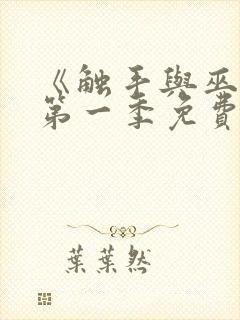 《触手與巫
第一季免費
葉葉然